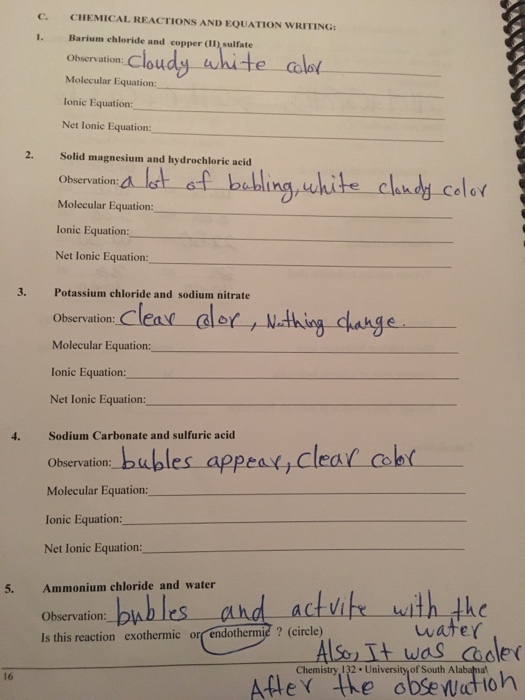 C. CHEMICAL REACTIONS AND EQUATION WRITING:
1. Barium chloride and copper (II) sulfate
Observation: Cloudy white color
Molecular Equation:
Ionic Equation:
Net Ionic Equation:
2. Solid magnesium and hydrochloric acid
Observation: a lot of bubling, white cloudy color
Molecular Equation:
Ionic Equation:
Net Ionic Equation:
3. Potassium chloride and sodium nitrate
Observation: Clear color, Nothing change.
Molecular Equation:
Ionic Equation:
Net Ionic Equation:
4. Sodium Carbonate and sulfuric acid
Observation: bubles appear, clear color
Molecular Equation:
Ionic Equation:
Net Ionic Equation:
5. Ammonium chloride and water
Observation: bubles and actvite with the
water
Is this reaction exothermic or endothermic ? (circle)
Also, It was cooler
16 Chemistry 132 • University of South Alabama
After the observation